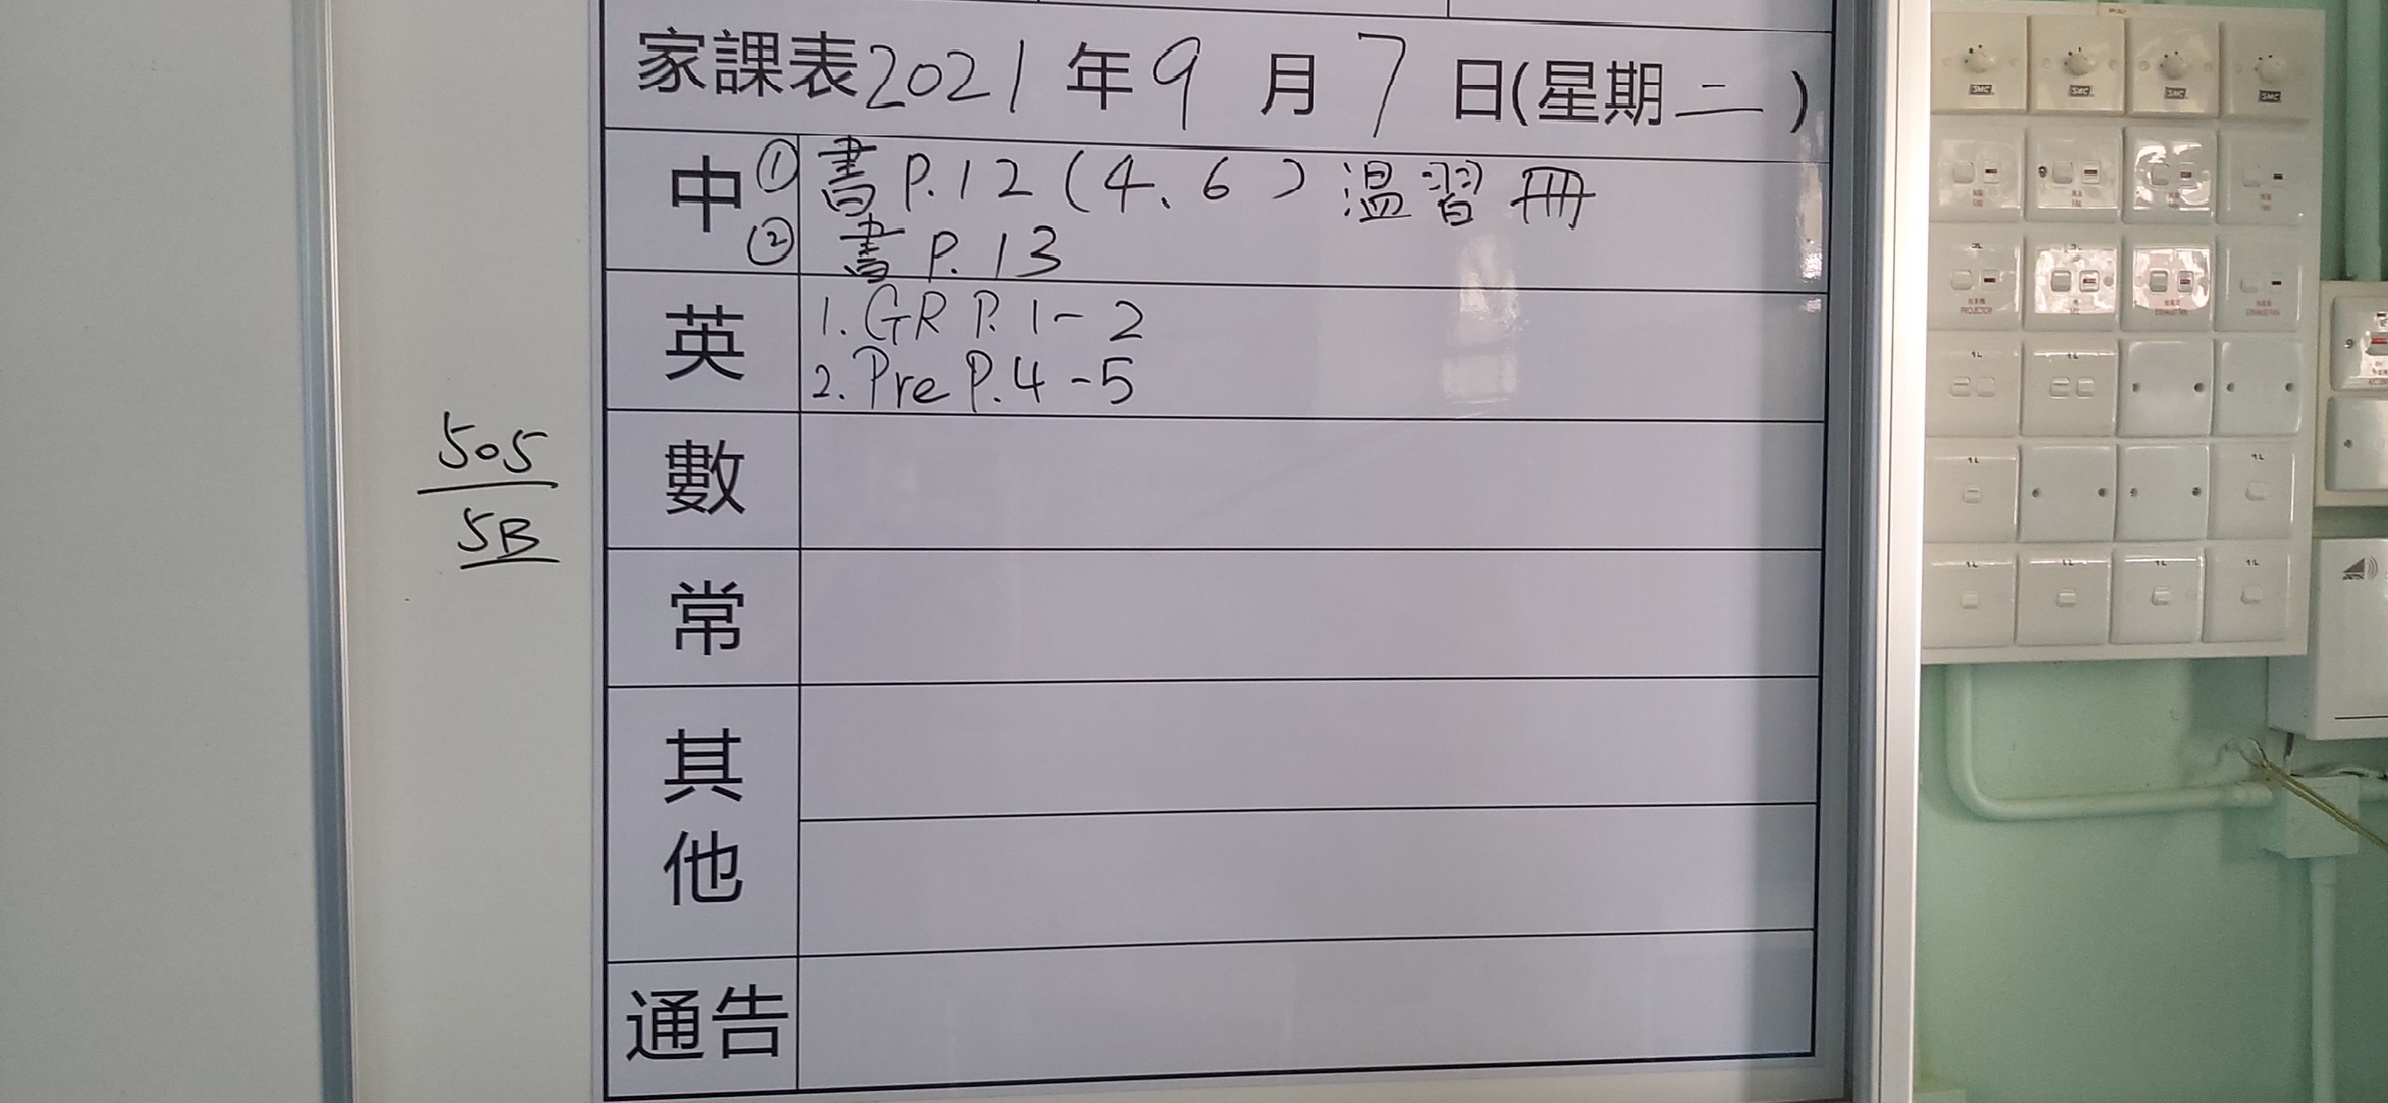 家課表2021年9月7日(星期二)
中 ① 書 P.12 (4、6) 溫習冊
② 書 P.13
英 1. GR P. 1-2
2. Pre P. 4-5
數
常
其他
通告
505
5B
SMC SMC SMC SMC
PROJECTOR